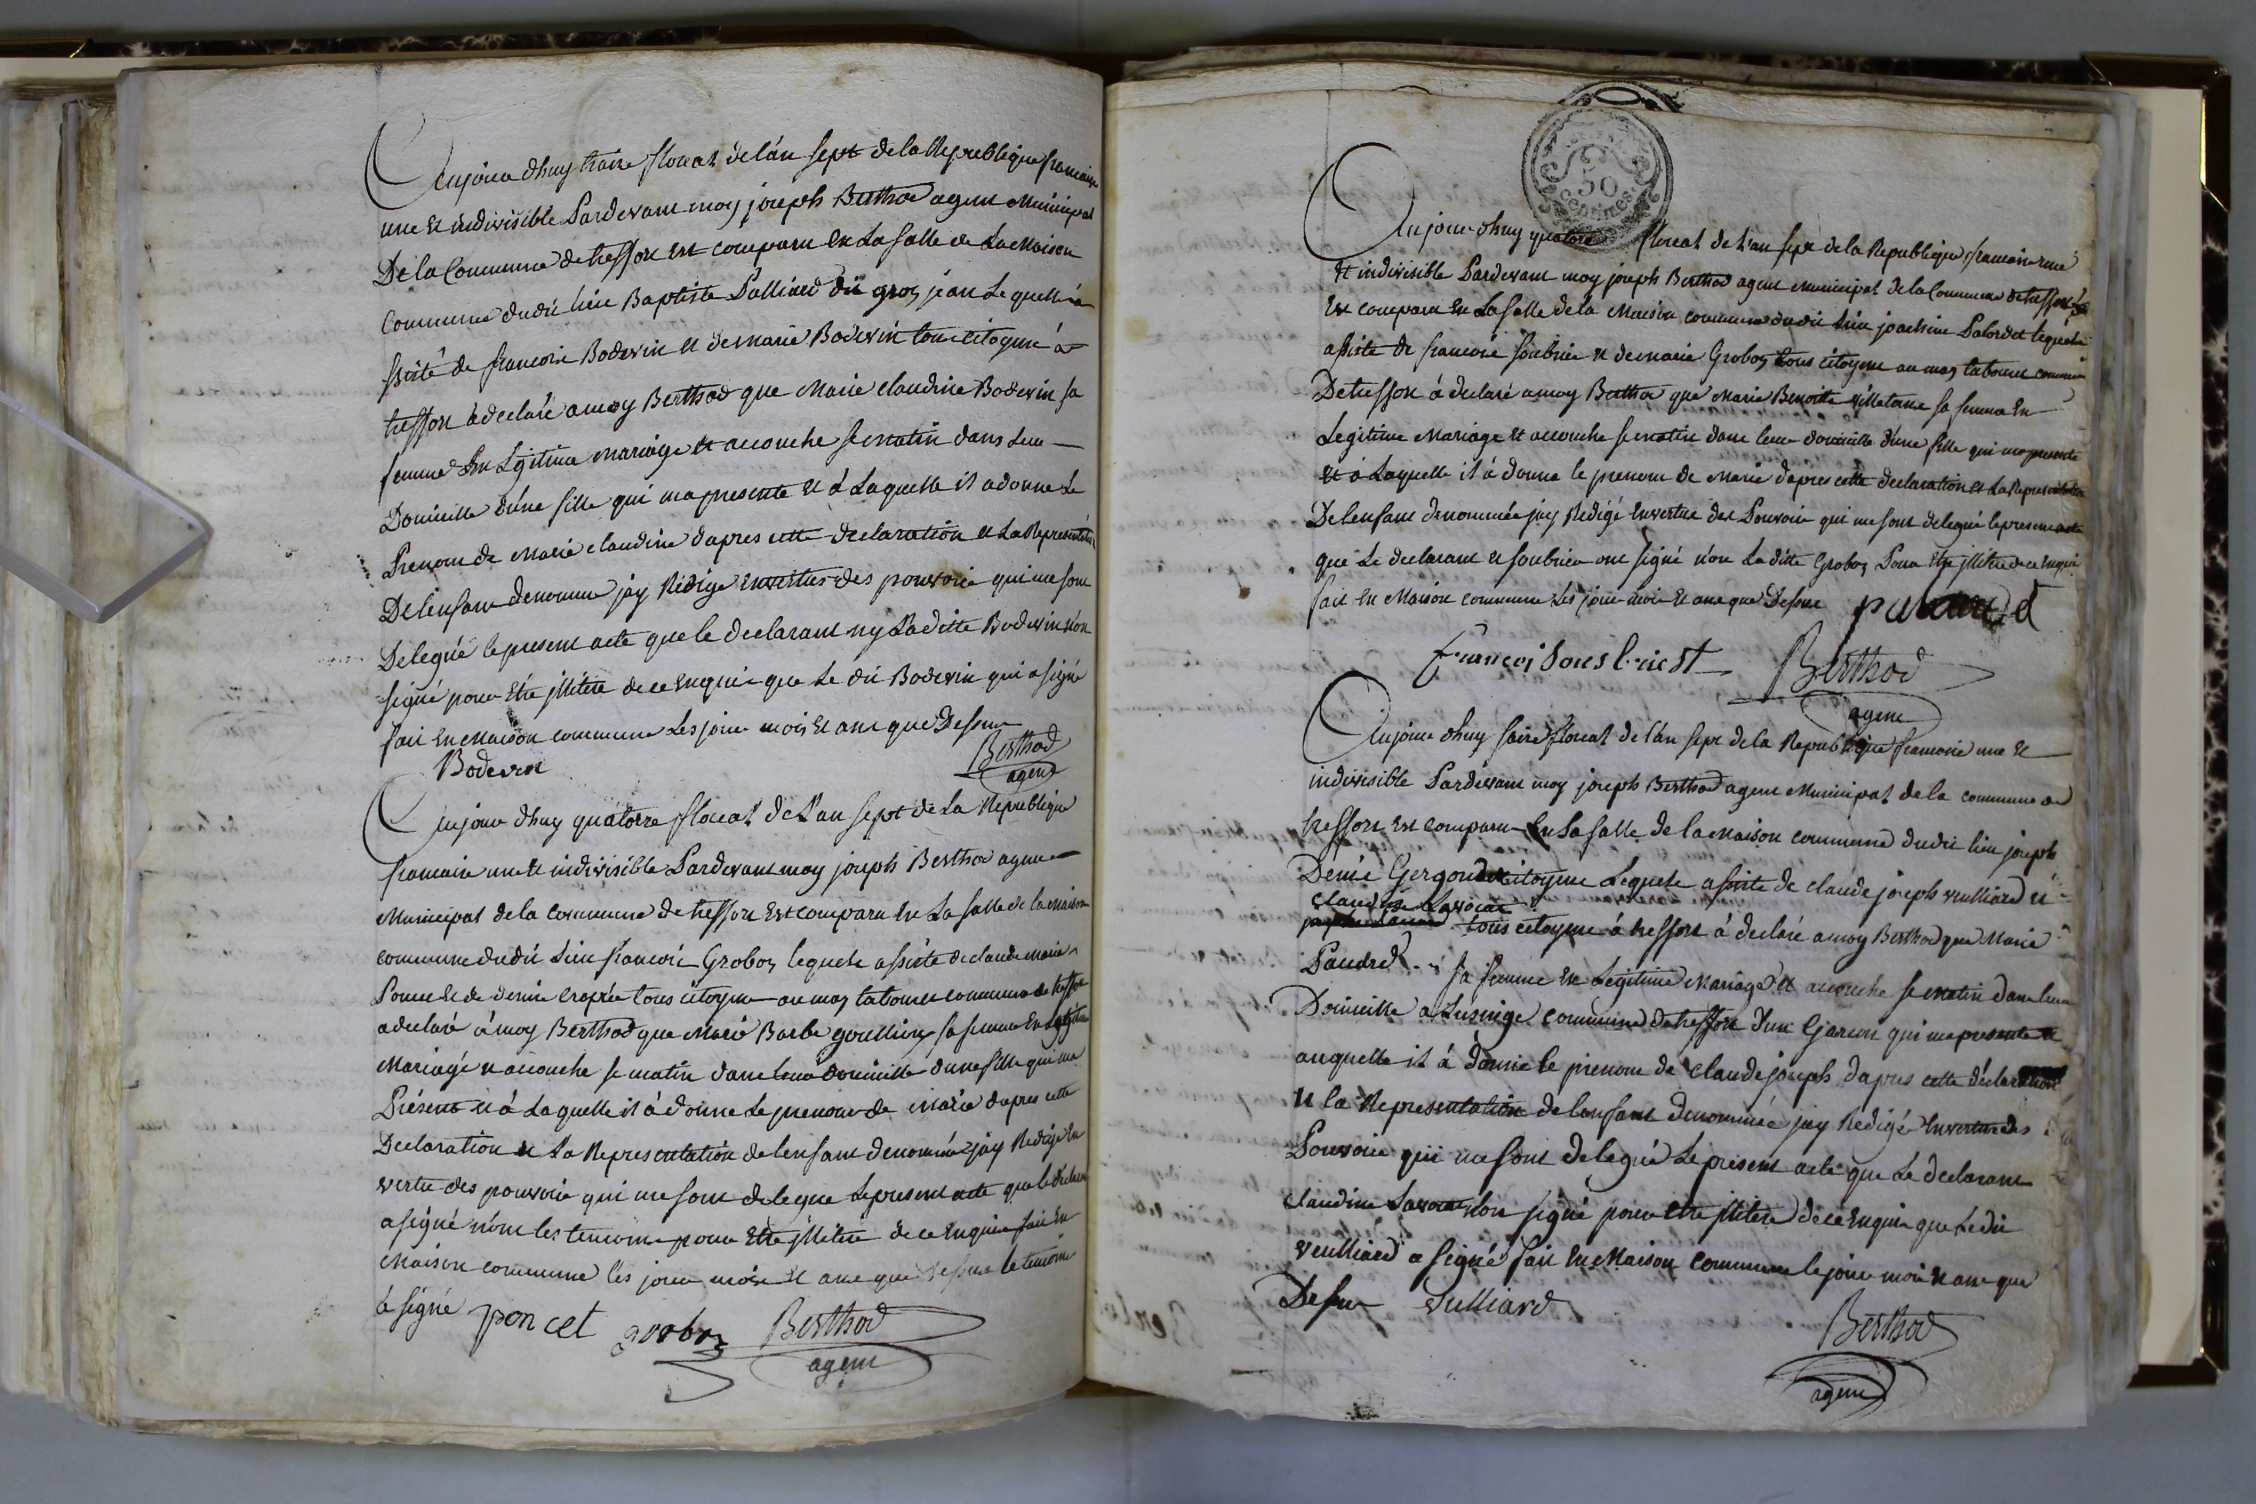 Aujour dhuy traize floreal de lán sept de la Republique francaise
une et indivisible Pardevant moy joseph Berthod agent Municipal
De la Commune de treffort est comparu En La Salle de La Maison
Commune dudit lieu Baptiste Palliard dit gros jean Le quelle á
ssisté de francois Bodevin et de marie Bodevin tous citoyens á
treffort á declaré a moy Berthod que Marie claudine Bodevin sa
femme En Lgitime mariage et accouche se matin dans Leur
Domicille d'une fille qui ma presente et á Laquelle il a donne Le
Prenom de Marie claudine dapres cette declaration et La Representation
De lenfant denomme jay Redige En vertus des pouvoir qui me sont
Delegué le present acte que le declarant ny La ditte Bodevin n'on
signé pour Etre jllitere de ce Enquis que Le dit Bodevin qui a signé
fait En Maison commune Les jour mois et ans que Dessus
Bodevin
Berthod
agent
Aujour dhuy quátorze floreal de L'an sept de La Republique
francaise une et indivisible Pardevant moy joseph Berthod agent
Municipal de la commune de treffort Est comparu En La Salle de la Maison
commune dudit Lieu francois Groboz lequele assisté de claude marie
Poncet et de denis tous citoyens au mas tabouret commune de treffort
a declaré á moy Berthod que Marie Barbe sa femme En Legitime
Mariage et accouche se matin dans Leur domicille dune fille qui ma
Présent et á Laquelle il á donne Le prenom de Marie dapres cette
Declaration et La Representation de lenfant denommé jay Redige En
vertu des pouvoir qui me sont delegue Le present acte que le declarant
a signé n'om les temoins pour Etre jllitere de ce Enquis fait En
Maison commune les jour mois et ans que dessus le temoins
á signé poncet groboz Berthod
agent
50
centimes
Aujour dhuy quatorze floreal de L'an sept de la Republique francaise une
et indivisible Pardevant moy joseph Berthod agent municipal de la Commune de treffort
Est comparu En La Salle de la Maison commune dudit Lieu joachim Palordet lequele
assiste de francois Soubrier et de marie Groboz tous citoyens au mas tabouret commune
De treffort á declaré a moy Berthod que Marie Benoitte sa femme En
Legitime Mariage et accouche se matin dans leur domicille d'une fille qui ma presente
et á Laquelle il á donne le prenom de Marie dapres cette declaration et La Representation
De lenfant denommée jay Redigé En vertue des Pouvoir qui me sont delegué le present acte
que Le declarant et Soubrier ont signé n'on La ditte Groboz Pour Etre jllitere de ce Enquis
fait En Maison commune Les jour mois et ans que Dessus
Berthod
agent
Aujour dhuy saize floreal de lán sept de la Republique francaise une et
indivisible Pardevant moy joseph Berthod agent Municipal de la commune de
treffort Est comparu En La Salle de la Maison commune dudit lieu joseph
Denis citoyens Lequele assiste de claude joseph vuilliard et
Claudine Lavocat
tous citoyens á treffort á declaré a moy Berthod que Marie
Paudret sa femme En Legitime Mariage et accouche se matin dans leur
Domicille a Lusinge commune de treffort d'un Garcon qui ma presente et
auquelle il á donné le prenom de claude joseph dapres cette déclaration
et la Representation de lenfant denommée jay Redigé En vertue des
Pouvoir qui me sont delegué Le present acte que Le declarant
claudine Lavocat n'on signé pour etre jllitere de ce Enquis que Le dit
vuilliard a signé fait En Maison commune le jour mois et ans que
Dessus vulliard
Berthod
agent